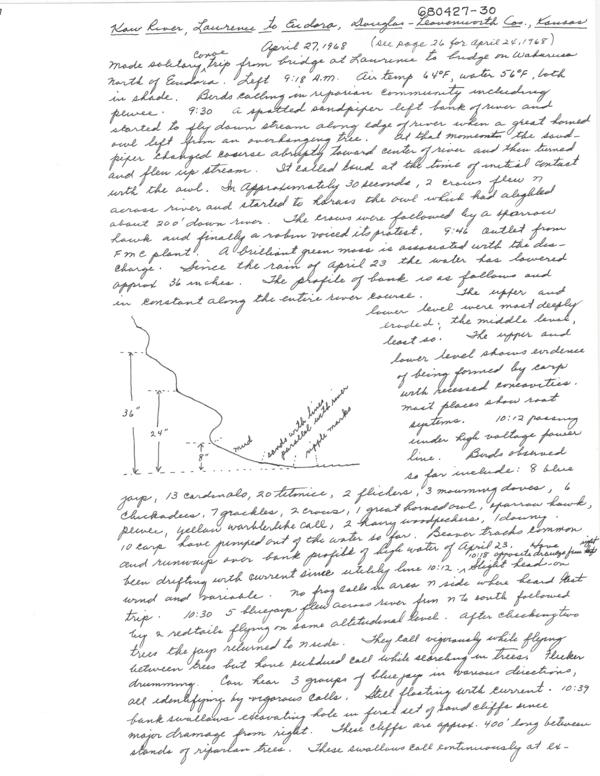 680427-30
Kaw River, Lawrence to Eudora, Douglas - Leavenworth Cos., Kansas
April 27, 1968 (see page 26 for April 24, 1968)
Made solitary canoe trip from bridge at Lawrence to bridge on Wakarusa
north of Eudora. Left 9:18 A.M. Air temp 64°F, water 56°F, both
in shade. Birds calling in riparian community including
pewee. 9:30 a spotted sandpiper left bank of river and
started to fly down stream along edge of river when a great horned
owl left from an overhanging tree. At that moment the sand-
piper changed course abruptly toward center of river and then turned
and flew up stream. It called loud at the time of initial contact
with the owl. In approximately 30 seconds, 2 crows flew N
across river and started to harass the owl which had alighted
about 200' down river. The crows were followed by a sparrow
hawk and finally a robin voiced its protest. 9:46 outlet from
FMC plant. A brilliant green moss is associated with the dis-
charge. Since the rain of April 23 the water has lowered
approx 36 inches. The profile of bank is as follows and
is constant along the entire river course. The upper and
lower level were most deeply
eroded; the middle level,
least so. The upper and
lower level shows evidence
of being formed by carp
with recessed concavities.
Most places show root
systems. 10:12 passing
under high voltage power
line. Birds observed
so far include: 8 blue
36"
24"
8"
mud
sands with lines
parallel with river
ripple marks
jays, 13 cardinals, 20 titmice, 2 flickers, 3 mourning doves, 6
chickadees, 7 grackles, 2 crows, 1 great horned owl, sparrow hawk,
pewee, yellow warblerlike call, 2 hairy woodpeckers, 1 downy.
10 carp have jumped out of the water so far. Beaver tracks common
and runways over bank profile of high water of April 23. Have
been drifting with current since utility line 10:12. 10:18 opposite drainage from right Slight head-on
wind and variable. No frog calls in area N side where heard last
trip. 10:30 5 bluejays flew across river from N to south followed
by 2 redtails flying on same altitudinal level. After checking two
trees the jays returned to N side. They call vigorously while flying
between trees but have subdued call while searching in trees. Flicker
drumming. Can hear 3 groups of blue jay in various directions,
all identifying by vigorous calls. Still floating with current. 10:39
bank swallows excavating hole in first set of sand cliffs since
major drainage from right. These cliffs are approx. 400' long between
stands of riparian trees. These swallows call continuously at ex-